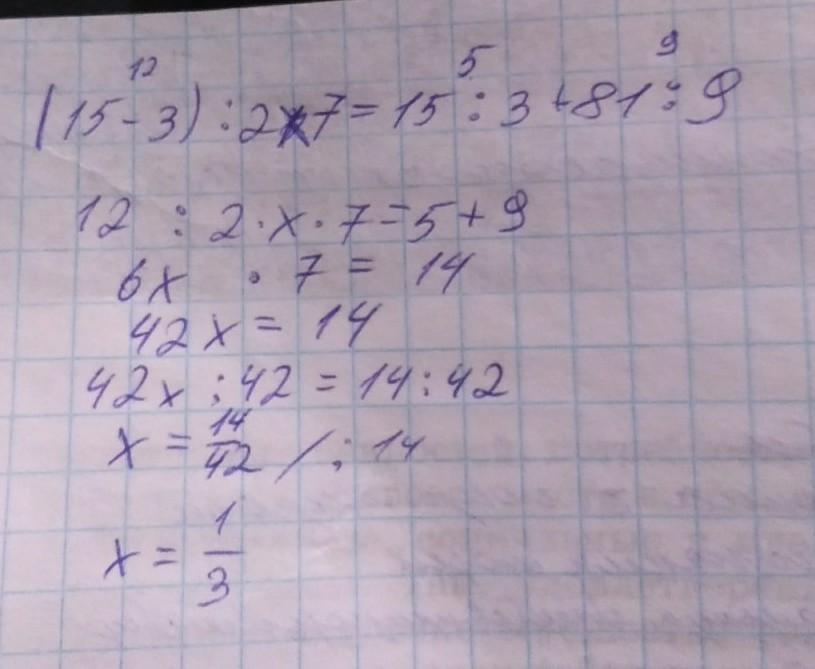 12 5 9
(15-3):2x7=15:3+81:9
12 : 2·x·7=5+9
6x · 7 = 14
42x = 14
42x :42 = 14:42
x = 14/42 /: 14
x = 1/3